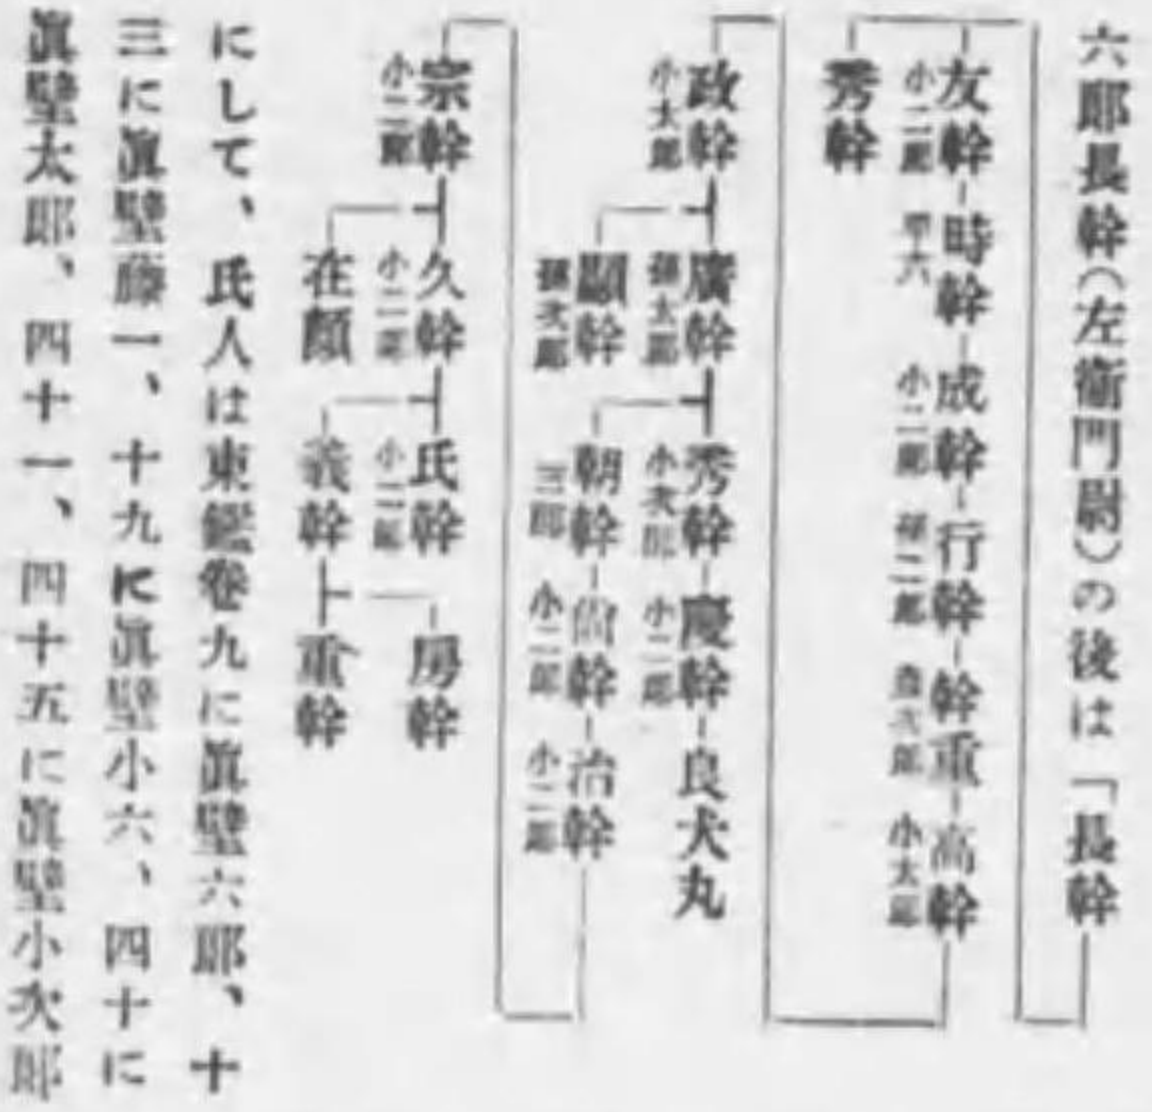 六郎長幹(左衞門尉)の後は「長幹
友幹 小二郎
時幹
成幹 小二郎
行幹 孫二郎
幹重
高幹 小太郎
秀幹
政幹 小太郎
廣幹 孫太郎
秀幹 小次郎
慶幹 小二郎
良犬丸
顯幹 孫次郎
朝幹 三郎
尙幹 小二郎
治幹 小二郎
宗幹 小二郎
久幹 小二郎
氏幹 小二郎
房幹
在顏
義幹
重幹
にして、氏人は東鑑卷九に眞壁六郎、十
三に眞壁藤一、十九に眞壁小六、四十に
眞壁太郎、四十一、四十五に眞壁小次郎